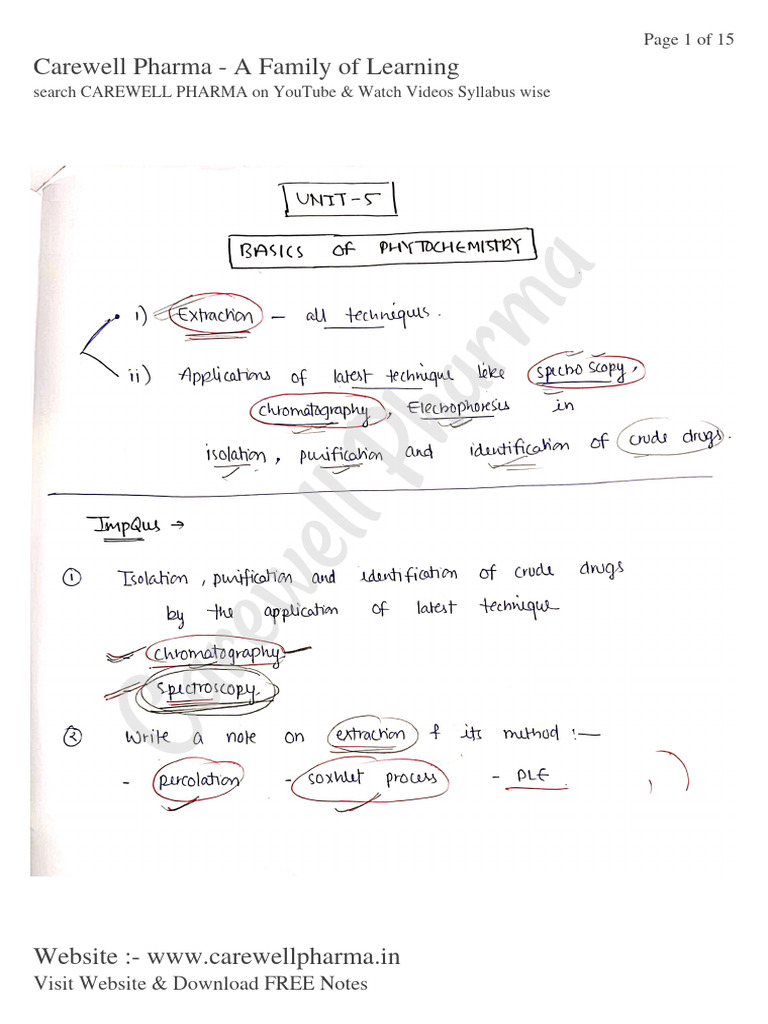 Page 1 of 15
Carewell Pharma - A Family of Learning
search CAREWELL PHARMA on YouTube & Watch Videos Syllabus wise
UNIT-5
BASICS OF PHYTOCHEMISTRY
i) Extraction - all techniques.
ii) Applications of latest technique like spectroscopy,
chromatography, Electrophoresis in
isolation, purification and identification of crude drugs.
ImpQus →
① Isolation, purification and identification of crude drugs
by the application of latest technique
chromatography
Spectroscopy.
② Write a note on extraction & its method :-
- percolation - soxhlet process - PLE
Carewell Pharma
Website :- www.carewellpharma.in
Visit Website & Download FREE Notes